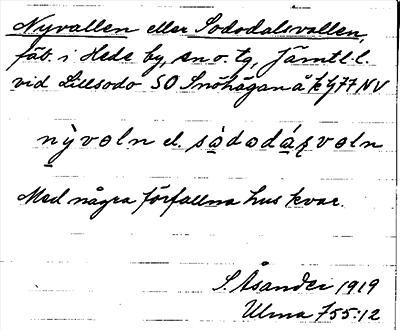 Nyvallen eller Sododalsvallen,
fäb. i Hede by, sn o. tg, Jämtl. l.
vid Lillsodo SO Snöhågan å kbl 77 NV
nỳvoln el. sòdodáʐvoln
Med några förfallna hus kvar.
S. Åsander 1919
Ulma 755:12